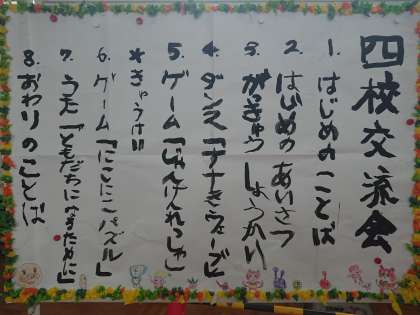 四校交流会
1. はじめのことば
2. はじめのあいさつ
3. がっきゅうしょうかい
4. ダンス「すすきウェーブ」
5. ゲーム「じゃんけんれっしゃ」
*きゅうけい
6. ゲーム「にこにこパズル」
7. うた「ともだちになるために」
8. おわりのことば